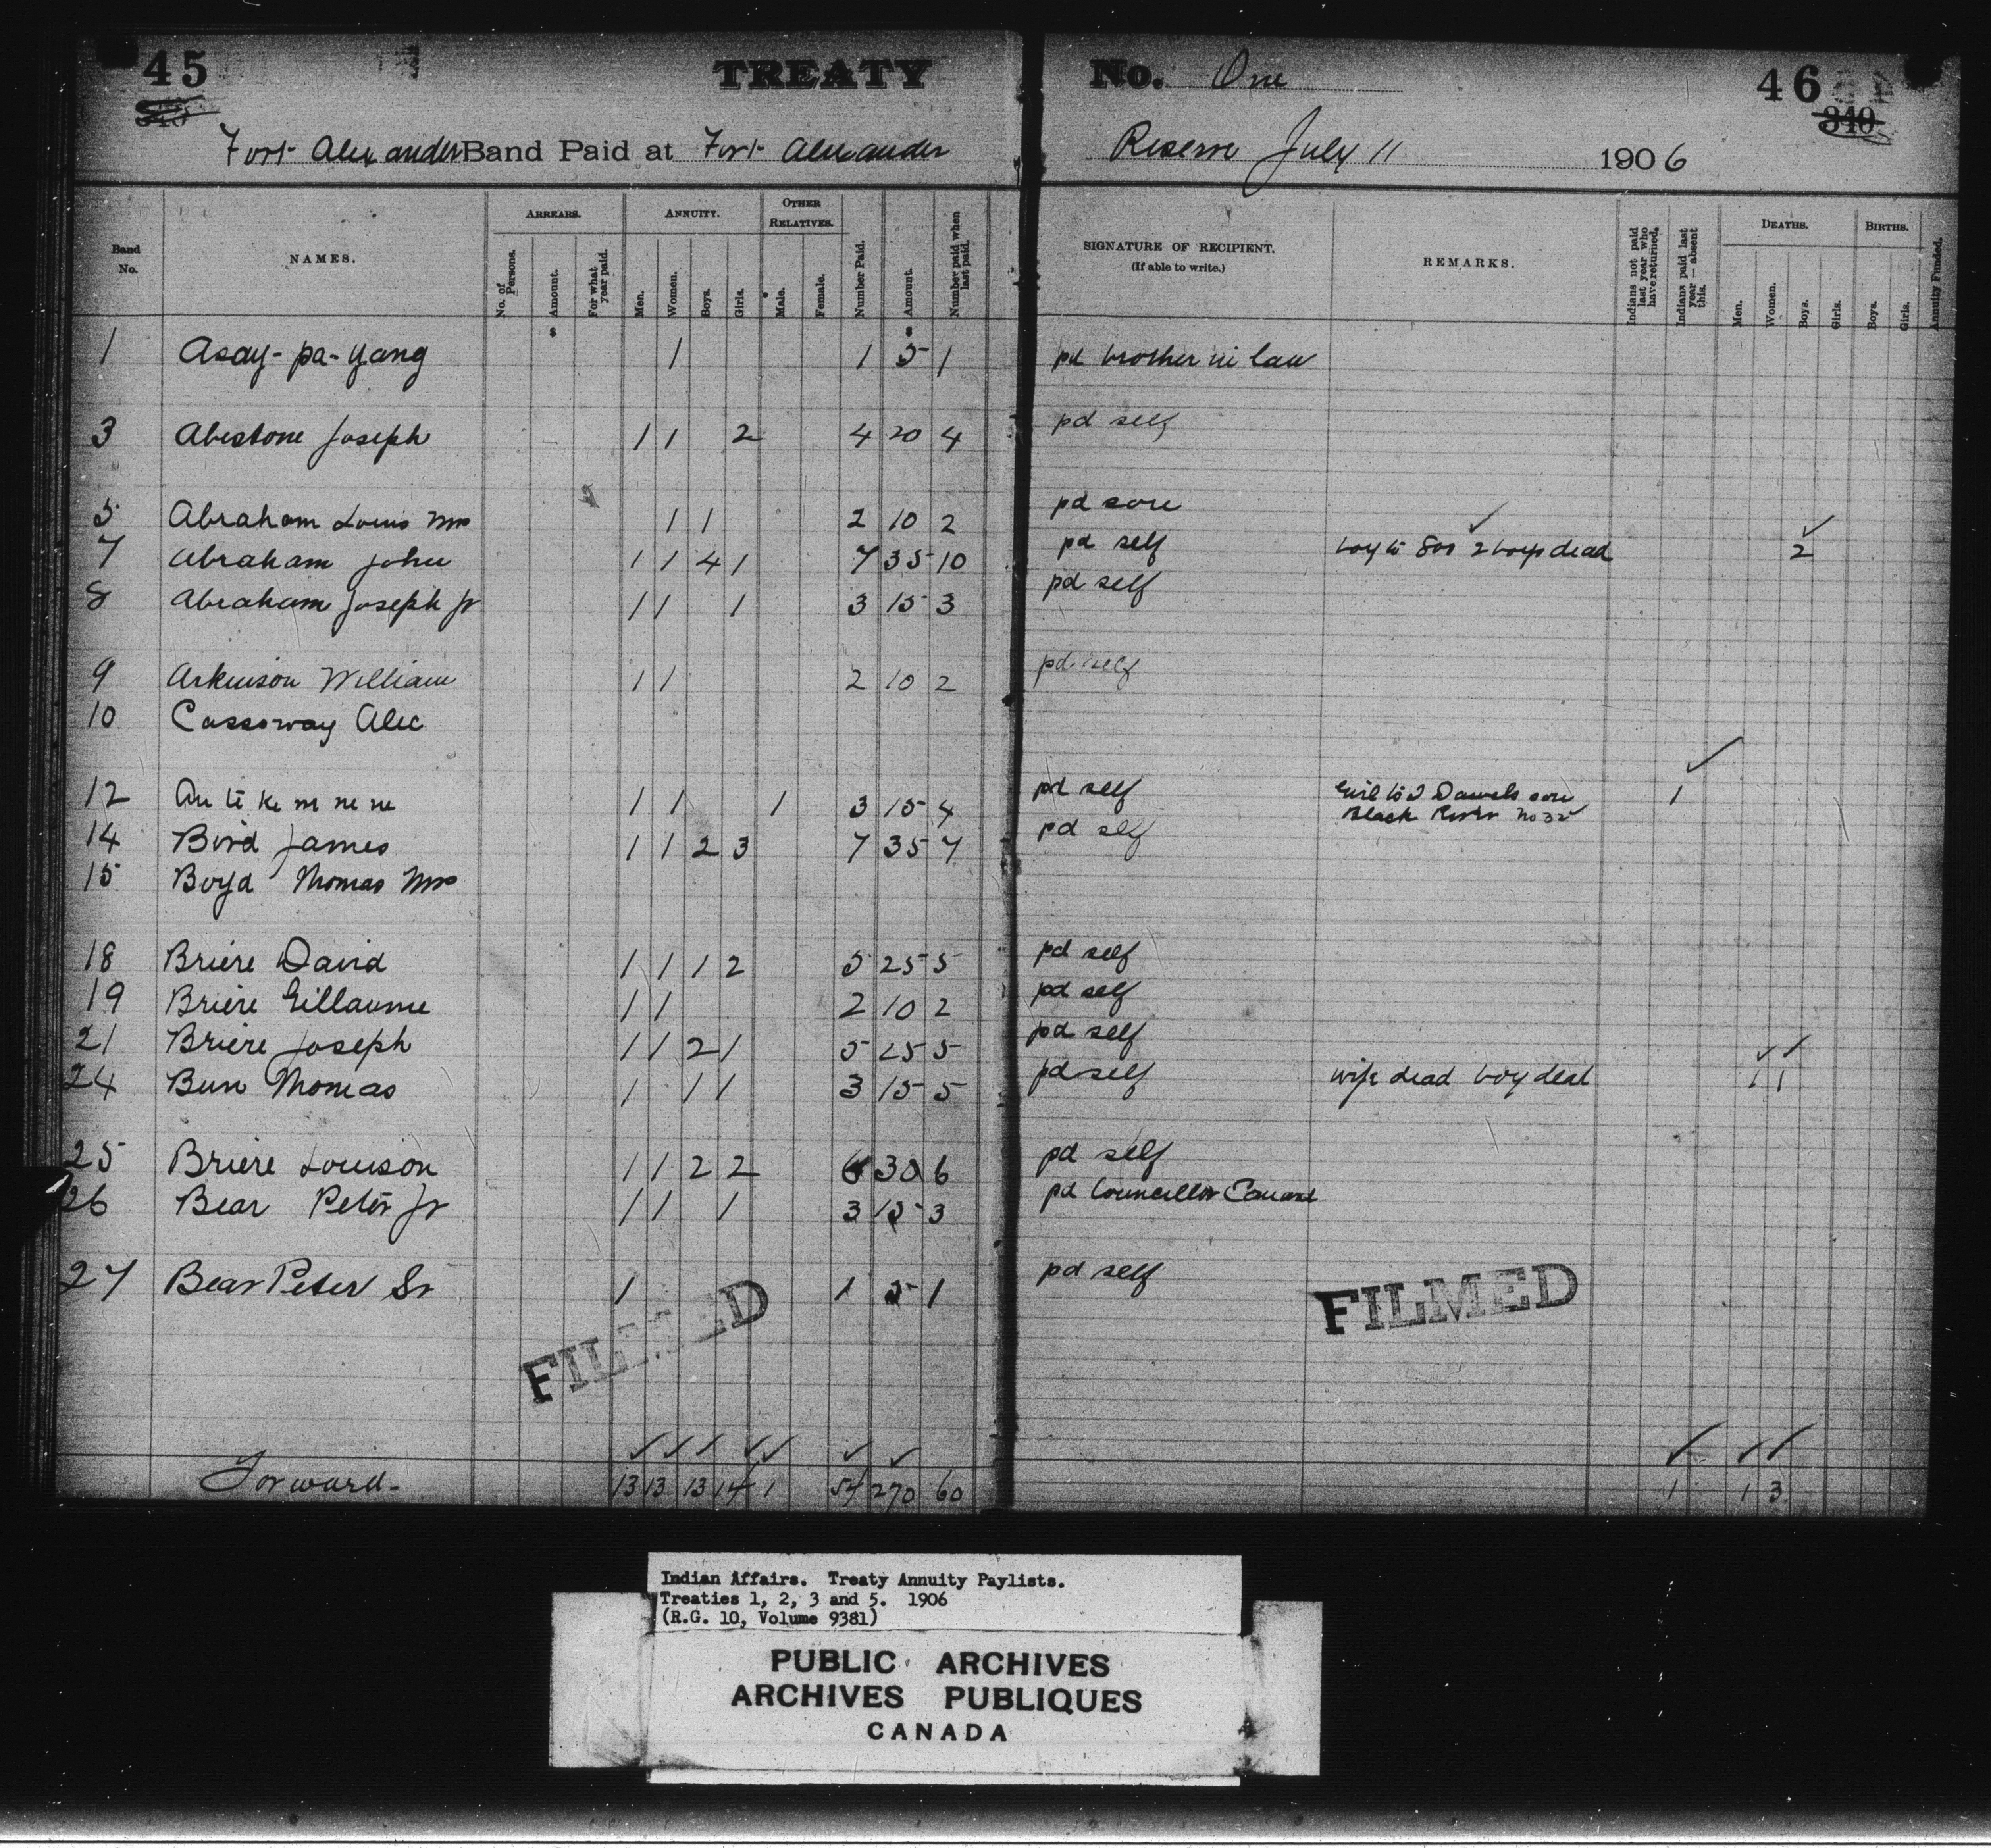 45 TREATY No. One 46
340 340
Fort Alexander Band Paid at Fort Alexander Reserve July 11 1906
Band No. NAMES. ARREARS. ANNUITY. OTHER RELATIVES. Number Paid. Amount. Number paid when last paid. SIGNATURE OF RECIPIENT. (If able to write.) REMARKS. Indians not paid last year who have returned. Indians paid last year — absent this. DEATHS. BIRTHS. Annuity Funded.
No. of Persons. Amount. For what year paid. Men. Women. Boys. Girls. Male. Female. Men. Women. Boys. Girls. Boys. Girls.
1 Asay-pa-yang 1 1 5 1 pd brother in law
3 Abestone Joseph 1 1 2 4 20 4 pd self
5 Abraham Louis Mrs 1 1 2 10 2 pd son
7 Abraham John 1 1 4 1 7 35 10 pd self boy to 800 2 boys dead 2
8 Abraham Joseph Jr 1 1 1 3 15 3 pd self
9 Arkinson William 1 1 2 10 2 pd self
10 Cassoway Alec
12 Au te ke m ne ne 1 1 1 3 15 4 pd self Girl to J Daniels son 1
Black River No 32
14 Bird James 1 1 2 3 7 35 7 pd self
15 Boyd Thomas Mrs
18 Briere David 1 1 1 2 5 25 5 pd self
19 Briere Gillaume 1 1 2 10 2 pd self
21 Briere Joseph 1 1 2 1 5 25 5 pd self
24 Bun Thomas 1 1 1 3 15 5 pd self wife dead boy dead 1 1
25 Briere Louison 1 1 2 2 6 30 6 pd self
26 Bear Peter Jr 1 1 1 3 15 3 pd Councillor Canard
27 Bear Peter Sr 1 1 5 1 pd self
FILMED FILMED
Forward- 13 13 13 14 1 54 270 60 1 1 3
Indian Affairs. Treaty Annuity Paylists.
Treaties 1, 2, 3 and 5. 1906
(R.G. 10, Volume 9381)
PUBLIC ARCHIVES
ARCHIVES PUBLIQUES
CANADA